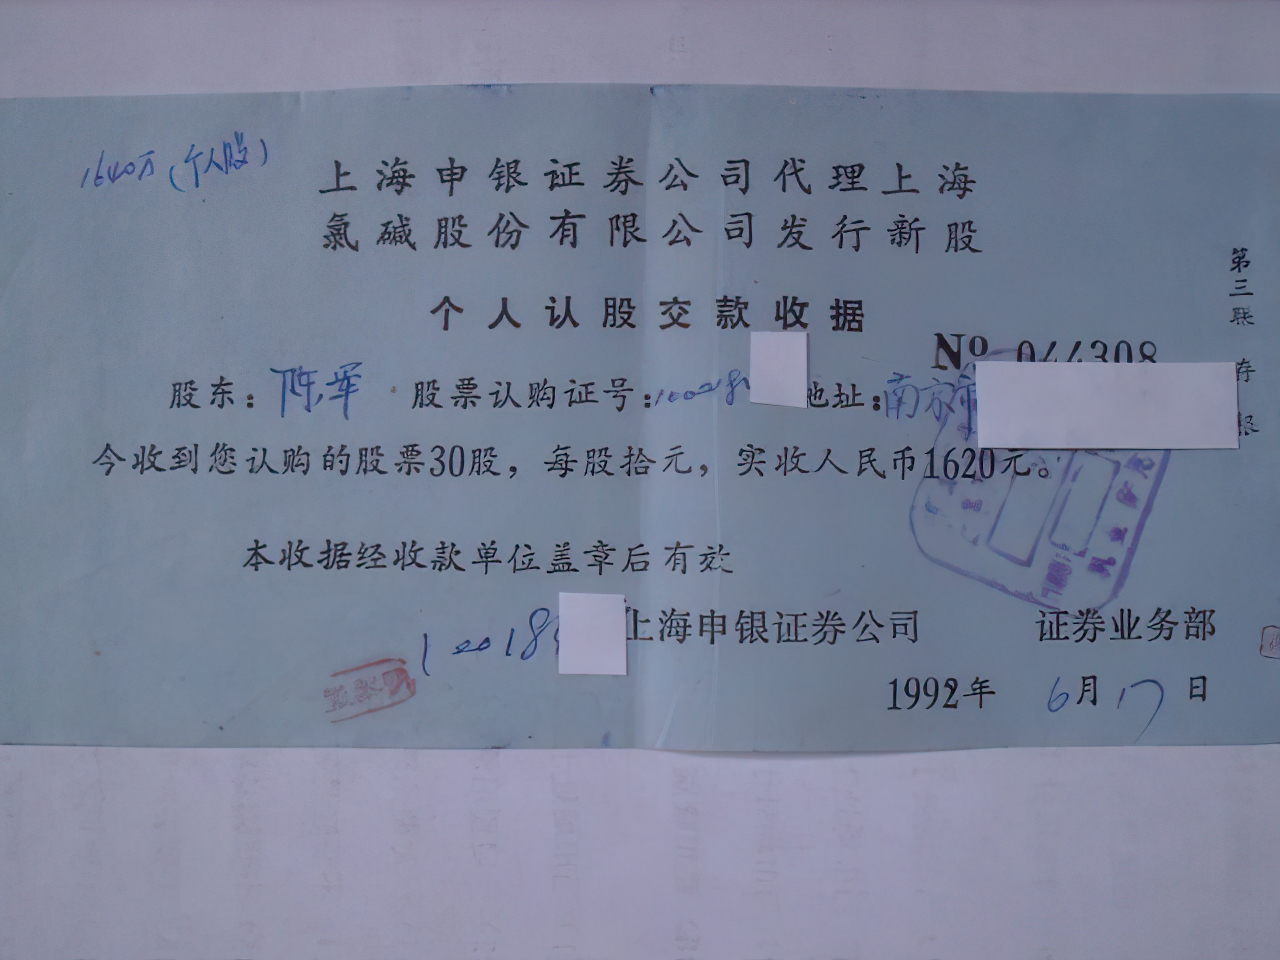 1640万(个人股)
上海申银证券公司代理上海
氯碱股份有限公司发行新股
个人认股交款收据
No 044308
股东：陈军 股票认购证号：10028 地址：南京市
今收到您认购的股票30股，每股拾元，实收人民币1620元。
本收据经收款单位盖章后有效
100189 上海申银证券公司 证券业务部
1992年 6月17日
第三联 存根